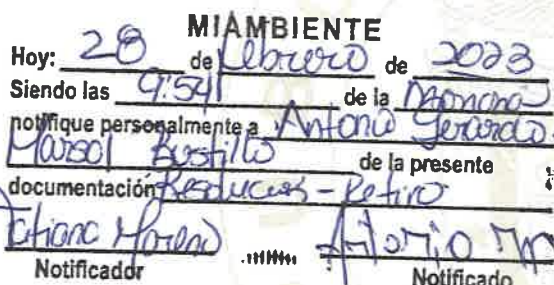 MIAMBIENTE
Hoy: 28 de Febrero de 2023
Siendo las 9:54 de la mañana
notifique personalmente a Antonio Gerardo
Marsol Bustillo de la presente
documentación Resolucion - Retiro
Tatiana Moreno Antonio
Notificador Notificado